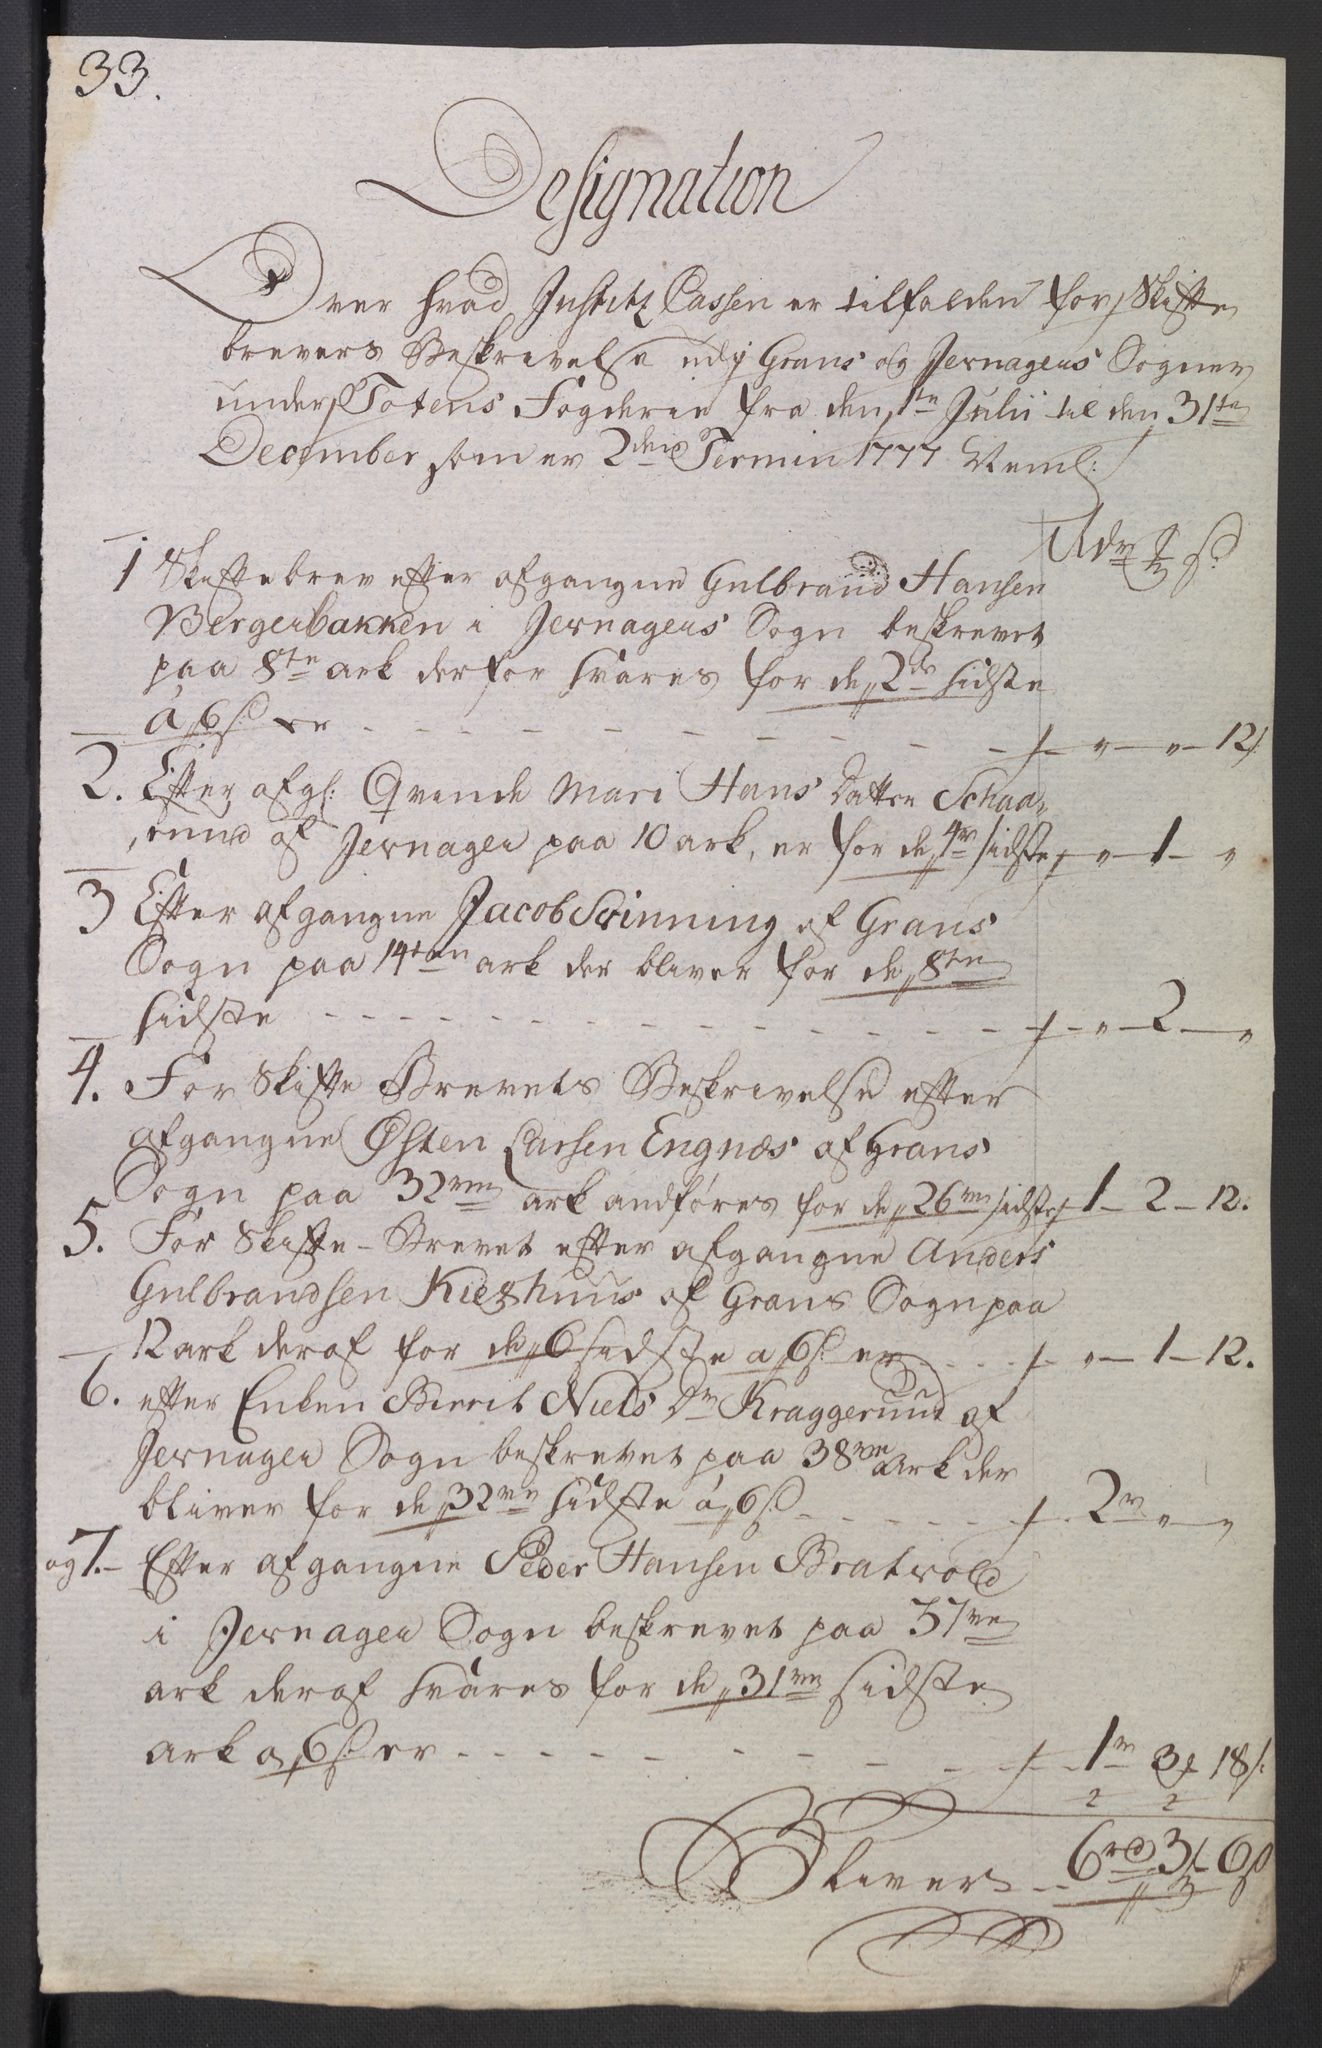 33.
Designation
Over hvad Justitz Cassen er tilfalden for Skifte
brevers Beskrivelse udj Grans og Jevnagers Sogner
under Totens Fogderie fra den 1te Julii til den 31te
December som er 2den Termin 1777 Neml:
Rdr ß
1 Skiftebrev efter afgangne Gulbrand Hansen
Bergerbakken i Jevnagers Sogn beskrevet
paa 8te ark derfor svares for de 2de sidste
á 6 ß er - - - " - " - 12
2. Efter afg: Qvinde Mari Hans Datter Schaa,
,rund af Jevnager paa 10 ark, er for de 4re sidste " - 1 - "
3 Efter afgangne Jacob Svinning af Grans
Sogn paa 14ten ark der bliver for de 8te
sidste - - - " - 2 - "
4. For Skifte Brevets Beskrivelse efter
afgangne Østen Larsen Engnæs af Grans
Sogn paa 32ve ark andføres for de 26ve sidste 1 - 2 - 12.
5. For Skifte-Brevet efter afgangne Anders
Gulbrandsen Kieshuus af Grans Sogn paa
12 ark deraf for de 6 sidste a 6 ß er - - - " - 1 - 12.
6. efter Enken Bierit Niels Dr Kraggerud af
Jevnager Sogn beskrevet paa 38ve Ark der
bliver for de 32ve sidste á 6 ß - - - 2 " "
og 7. Efter afgangne Peder Hansen Bratvold
i Jevnager Sogn beskrevet paa 37ve
ark deraf svares for de 31ve sidste
ark a 6 ß er - - - 1 3 18
2 2
Bliver - - 6rd 3 6 ß